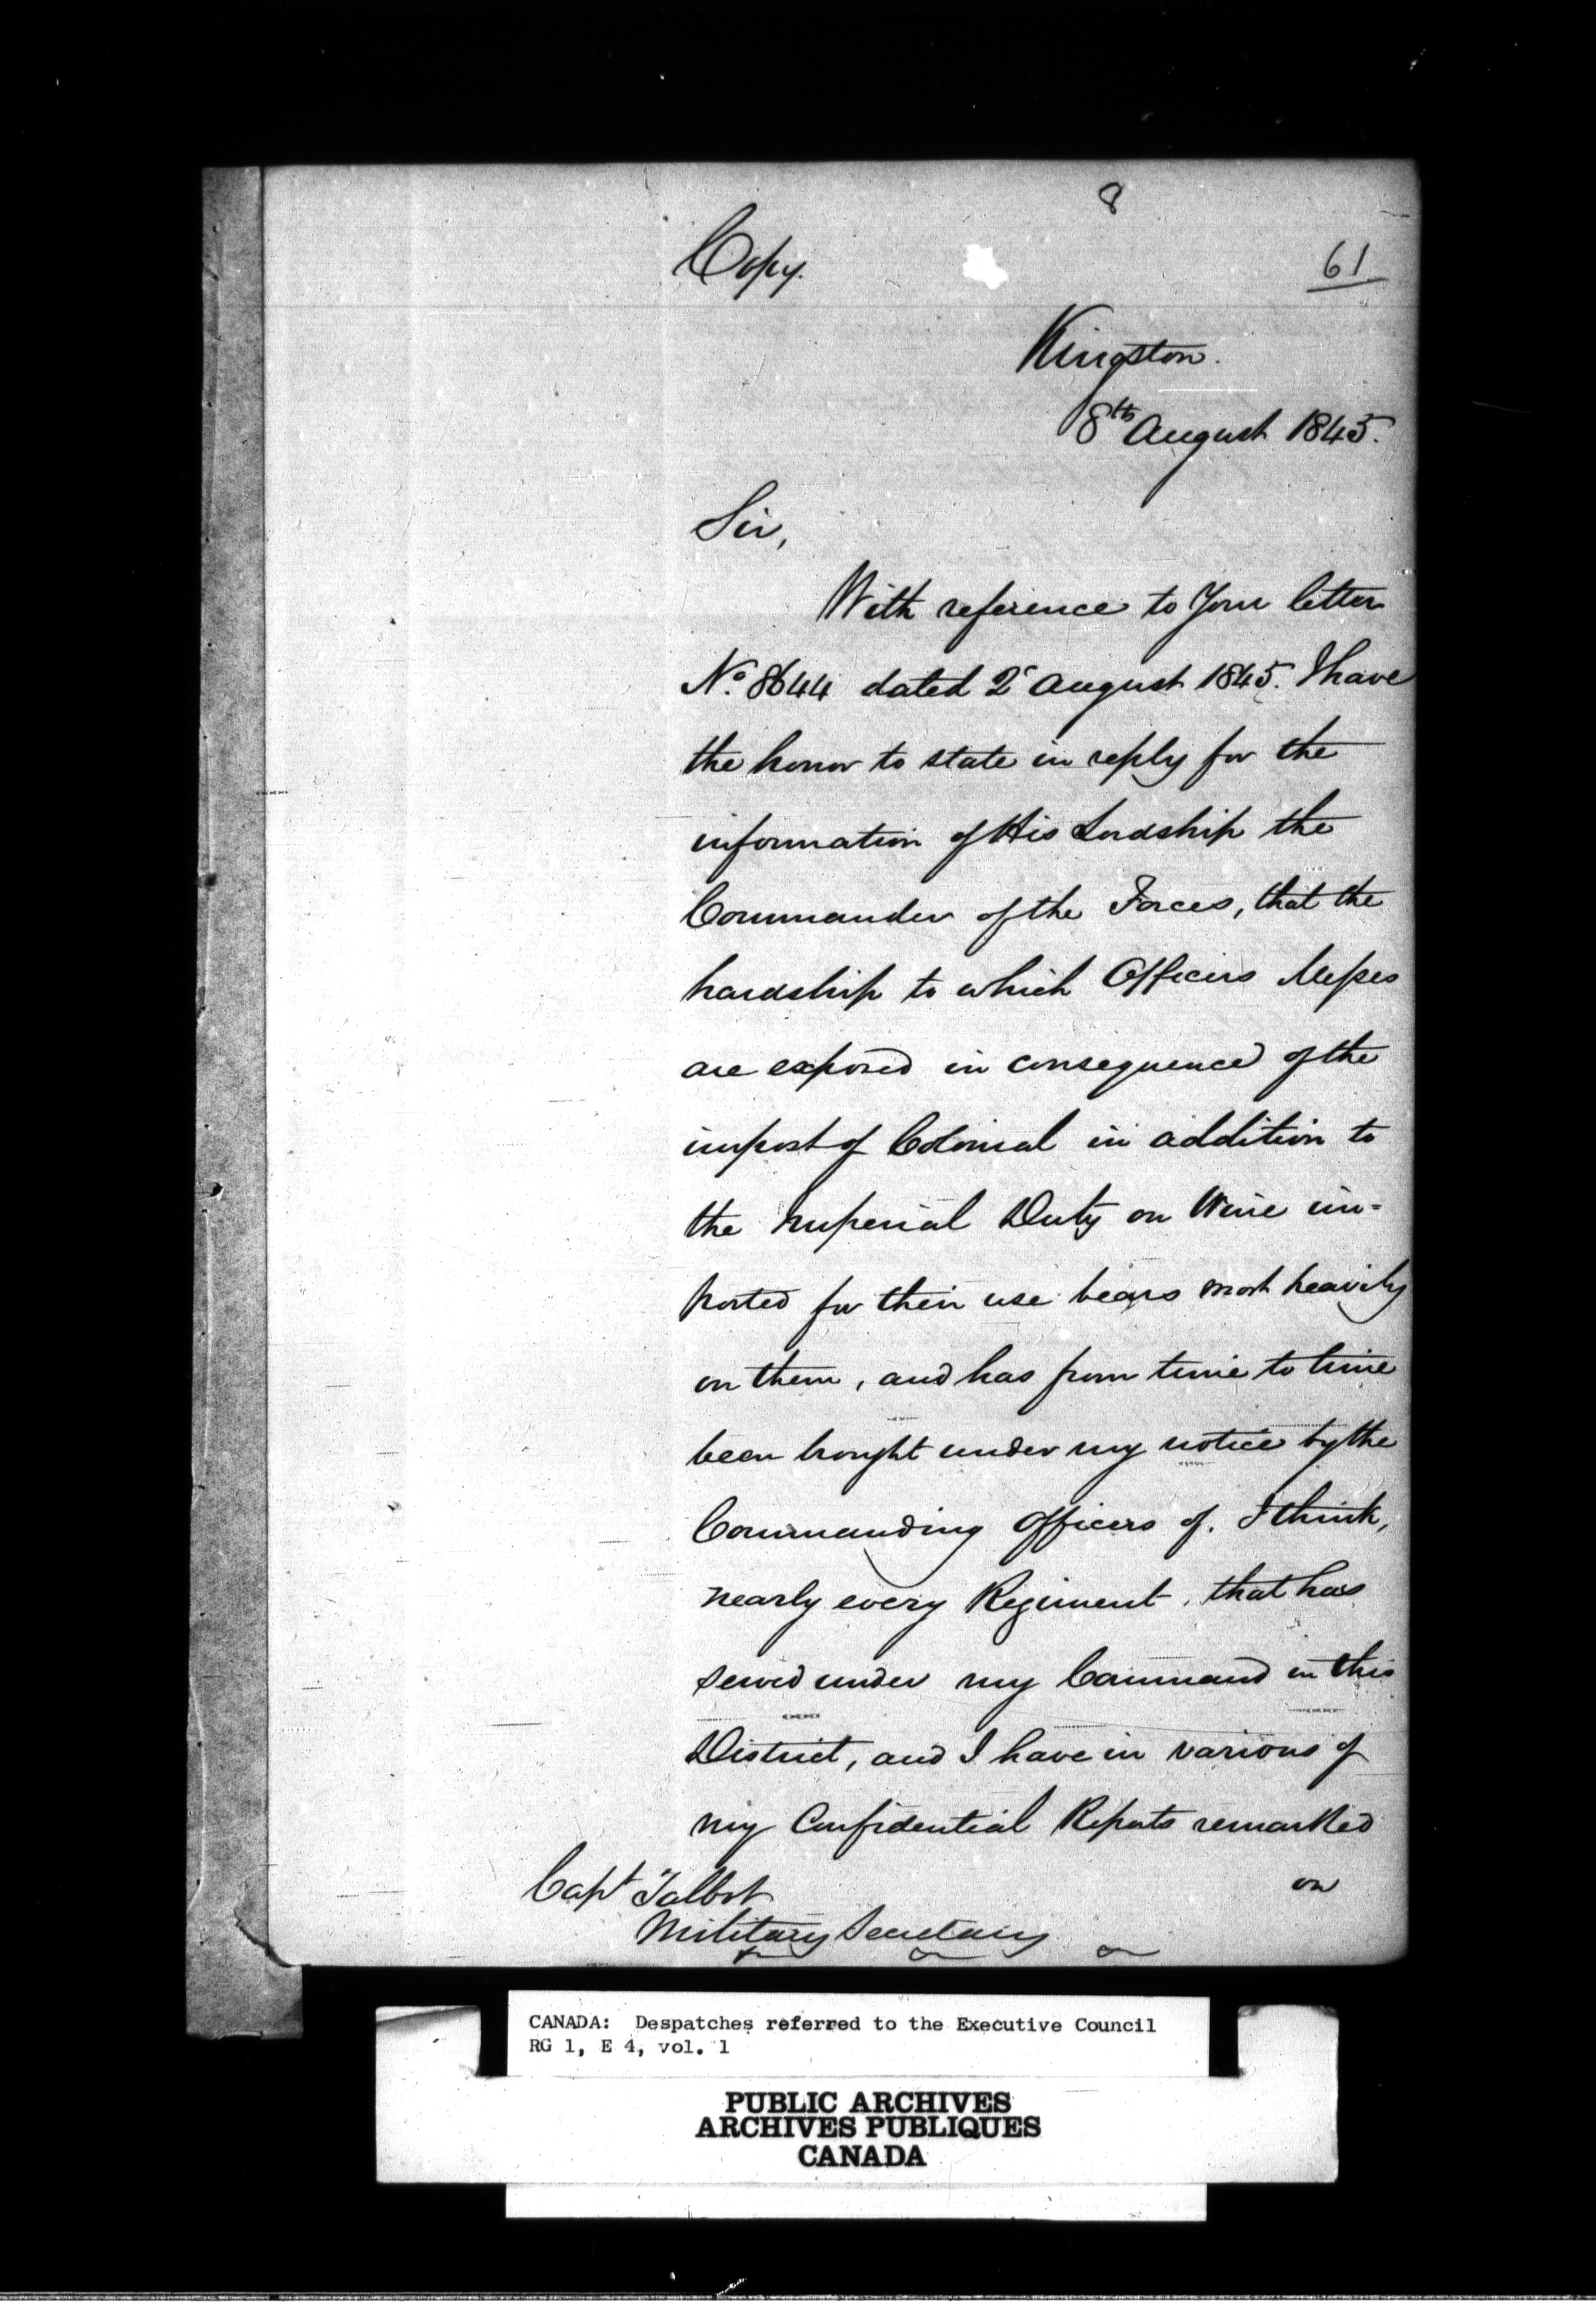 8
Copy.
61
Kingston.
8th August 1845.
Sir,
With reference to Your letter
No. 8644 dated 2d August 1845. I have
the honor to state in reply for the
information of His Lordship the
Commander of the Forces, that the
hardship to which Officers Messes
are exposed in consequence of the
impost of Colonial in addition to
the Imperial Duty on Wine im=
ported for their use bears most heavily
on them, and has from time to time
been brought under my notice by the
Commanding Officers of, I think,
nearly every Regiment, that has
served under my Command in this
District, and I have in various of
my Confidential Reports remarked
on
Capt Talbot
Military Secretary
CANADA: Despatches referred to the Executive Council
RG 1, E 4, vol. 1
PUBLIC ARCHIVES
ARCHIVES PUBLIQUES
CANADA